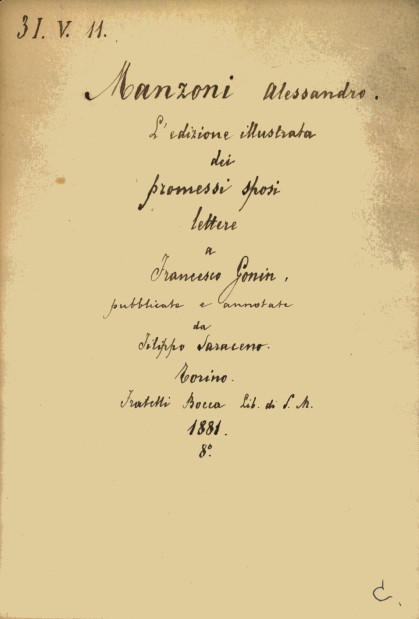 31. V. 11.
Manzoni Alessandro.
L'edizione illustrata
dei
promessi sposi
lettere
a
Francesco Gonin,
pubblicate e annotate
da
Filippo Saraceno.
Torino.
Fratelli Bocca Lib. di S. M.
1881.
8º.
C.